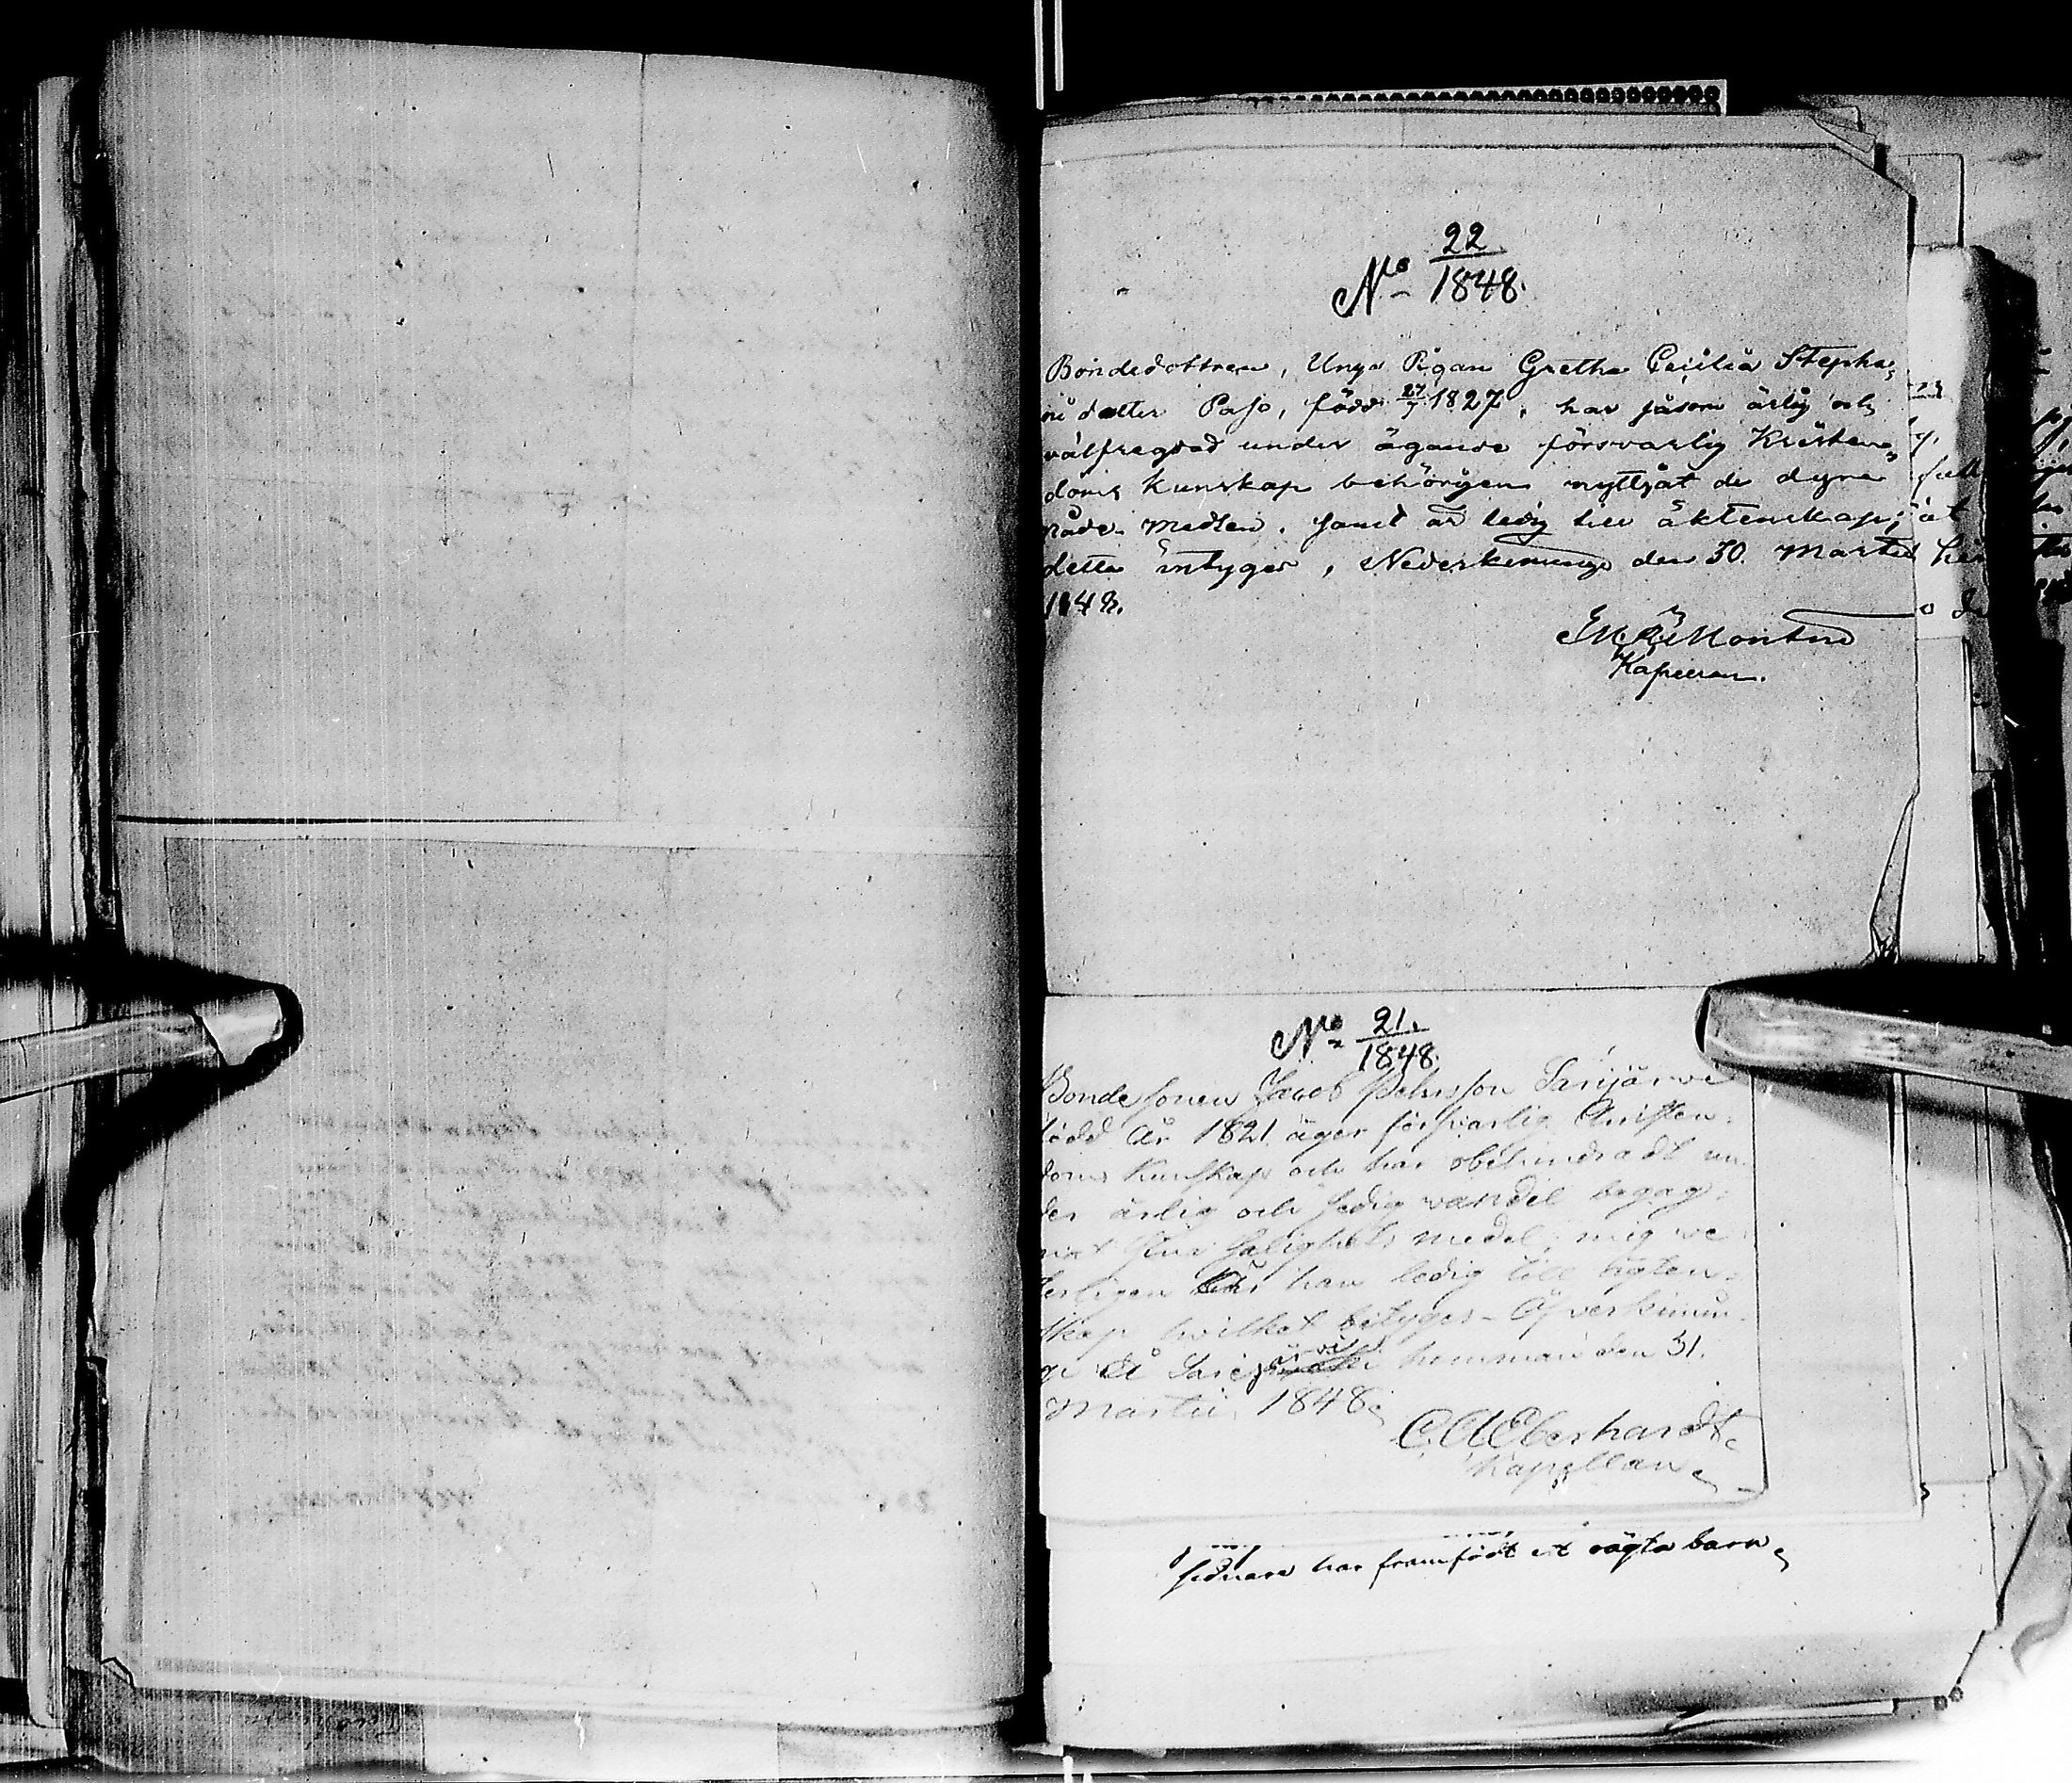 22
No 1848.
Bondedottren, Unga Pigan Gretha Cecilia Stepha-
ni dotter Pajo, född 27/7 1827, har såsom ärlig och
välfregdad under ägande försvarlig Kristen-
doms Kunskap behörigen nyttjat de dyra
nåde medlen, samt är ledig till äktenskap;
detta intygar, Nederkemuunge den 30. Martii
1848.
Kapellan.
21.
No 1848.
Bondesonen Jacob Pehrsson Sarijärwe
född År 1821, äger försvarlig Christen-
doms Kunskap och har obehindradt un-
der ärlig och sedig vandel begag-
nat sina salighets medel; mig ve-
terligen är han ledig till ägten-
skap hvilket betygas - Öfverkimun-
ge å Sarijärvi hemman den 31.
Martii, 1848.
C. A Eberhardt
Kapellan
sednare har framfödt et oägta barn